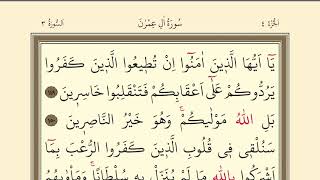 الجزء ٤ سورة اٰل عمرٰن السورة ٣
يَٓا اَيُّهَا الَّذٖينَ اٰمَنُٓوا اِنْ تُطٖيعُوا الَّذٖينَ كَفَرُوا
يَرُدُّوكُمْ عَلٰٓى اَعْقَابِكُمْ فَتَنْقَلِبُوا خَاسِرٖينَ ١٤٩
بَلِ اللّٰهُ مَوْلٰيكُمْ وَهُوَ خَيْرُ النَّاصِرٖينَ ١٥٠
سَنُلْقٖى فٖى قُلُوبِ الَّذٖينَ كَفَرُوا الرُّعْبَ بِمَٓا
اَشْرَكُوا بِاللّٰهِ مَا لَمْ يُنَزِّلْ بِهٖ سُلْطَانًا وَمَاْوٰيهُمُ